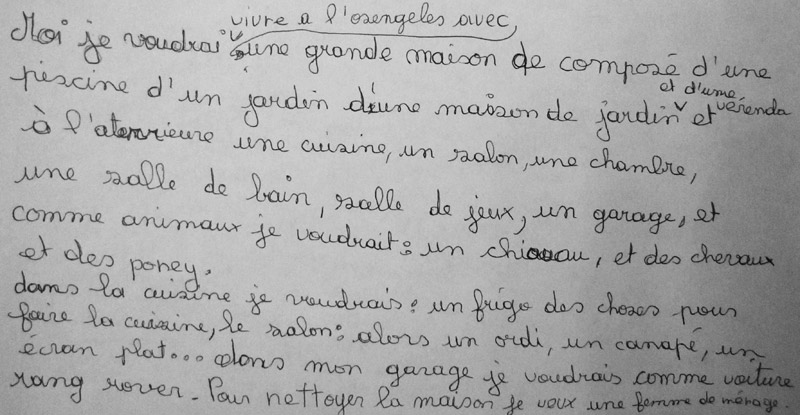 vivre a l'osengeles avec,
Moi je voudrai une grande maison de composé d'une
piscine d'un jardin d'une maison de jardin et
et d'une
vérenda
à l'aterrieure une cuisine, un salon, une chambre,
une salle de bain, salle de jeux, un garage, et
comme animaux je voudrait: un , et des chevaux
et des poney.
dans la cuisine je voudrais: un frigo des choses pour
faire la cuisine, le salon: alors un ordi, un canapé, un
écran plat... dans mon garage je voudrais comme voiture
rang rover. Pour nettoyer la maison je voux une femme de ménage.